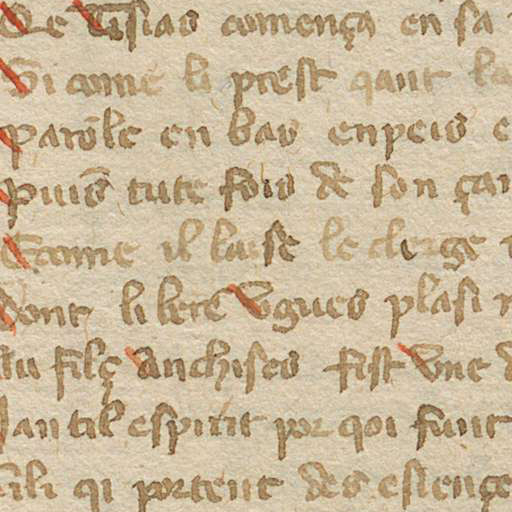 De Cisias comença en sa
Si come li prest qant la
parole en bas enpeis e
puis tute fois de son çan
E come il laise le clerge
dont li bere Vgues plasi
au filç Anchises fist Vne d
Jantil espirit por qoi funt
cili qi portent des esiençe